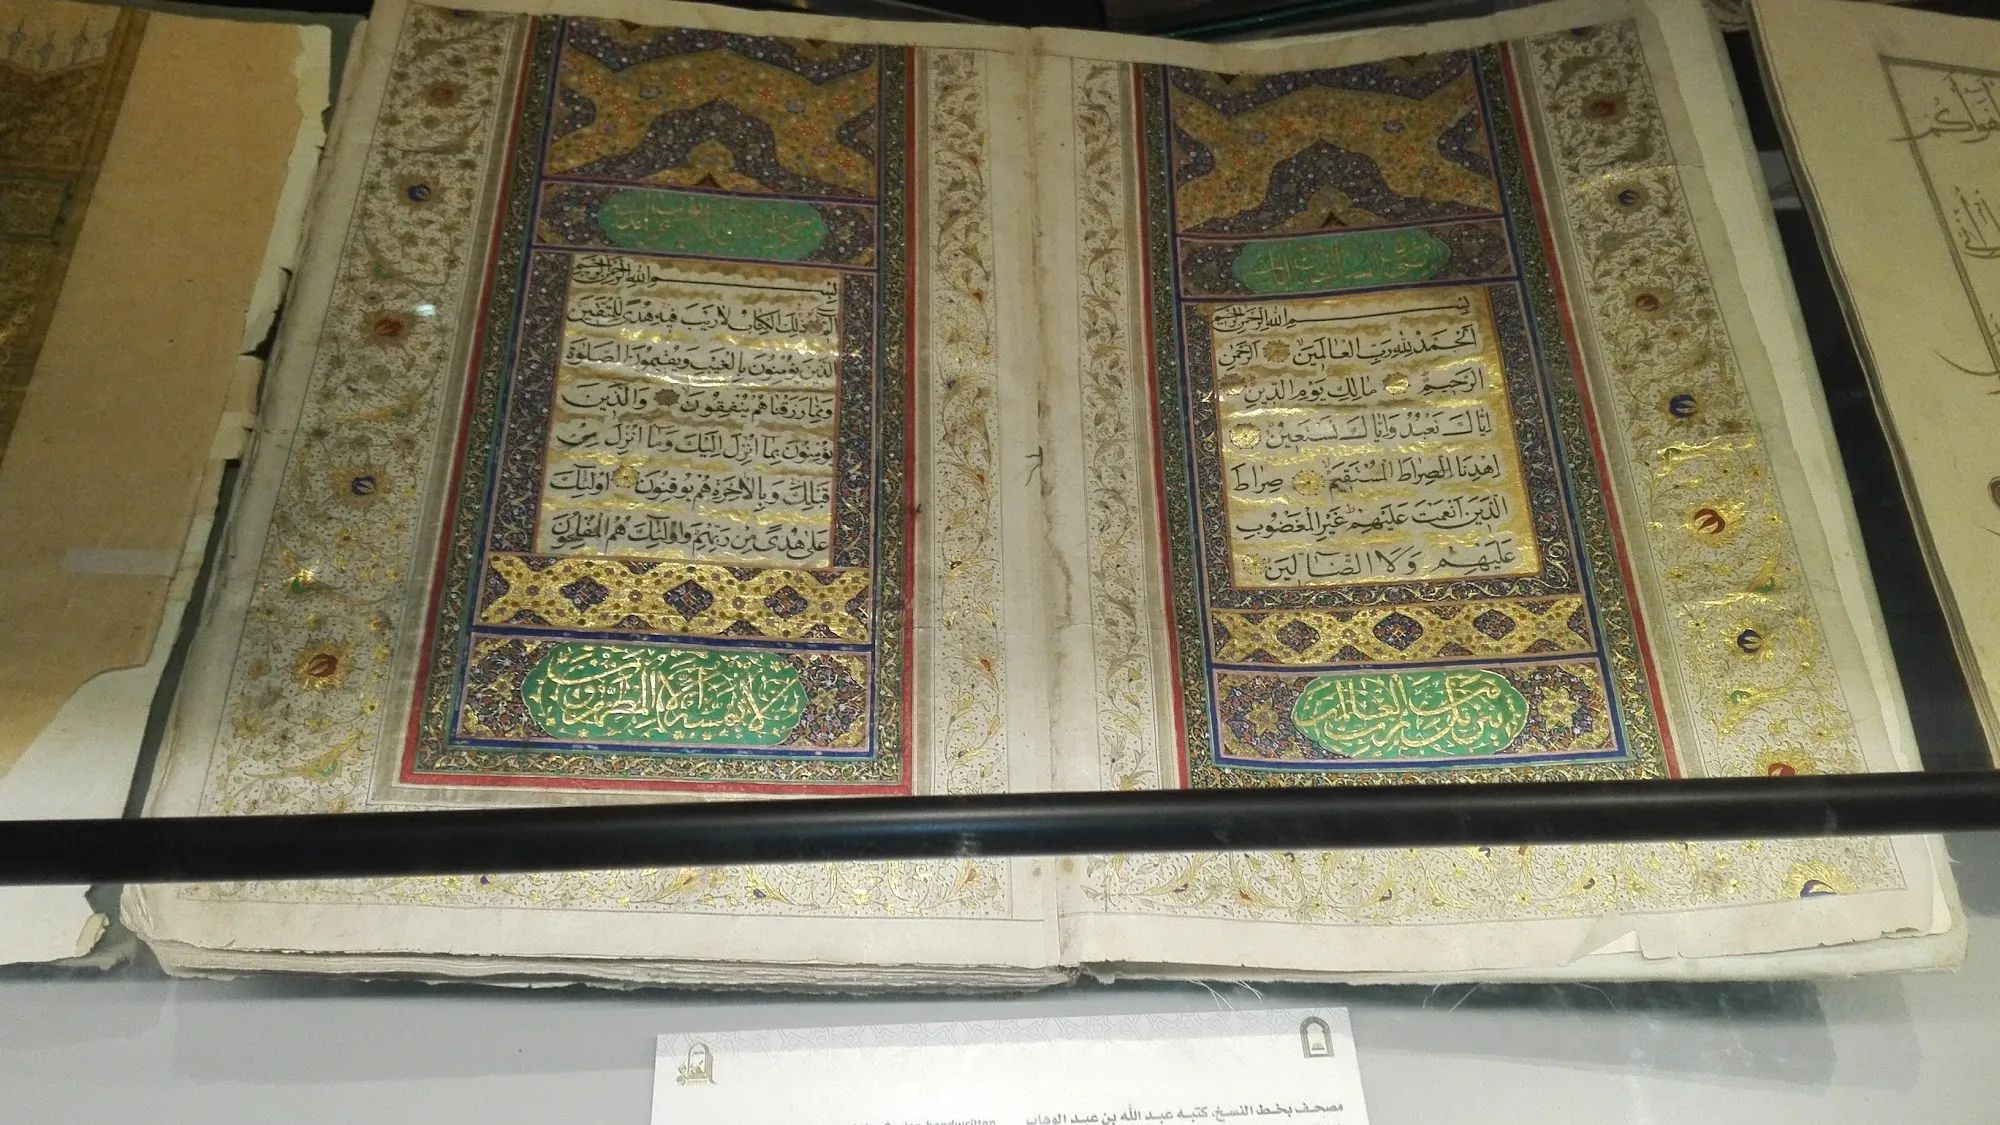 بسم الله الرحمن الرحيم
الحمد لله رب العالمين الرحمن
الرحيم مالك يوم الدين
اياك نعبد واياك نستعين
اهدنا الصراط المستقيم صراط
الذين انعمت عليهم غير المغضوب
عليهم ولا الضالين
تنزيل من رب العالمين
بسم الله الرحمن الرحيم
الم ذلك الكتاب لا ريب فيه هدى للمتقين
الذين يؤمنون بالغيب ويقيمون الصلوة
ومما رزقناهم ينفقون والذين
يؤمنون بما انزل اليك وما انزل من
قبلك وبالاخرة هم يوقنون اولئك
على هدى من ربهم واولئك هم المفلحون
لا يمسه الا المطهرون
مصحف بخط النسخ، كتبه عبد الله بن عبد الوهاب
handwritten